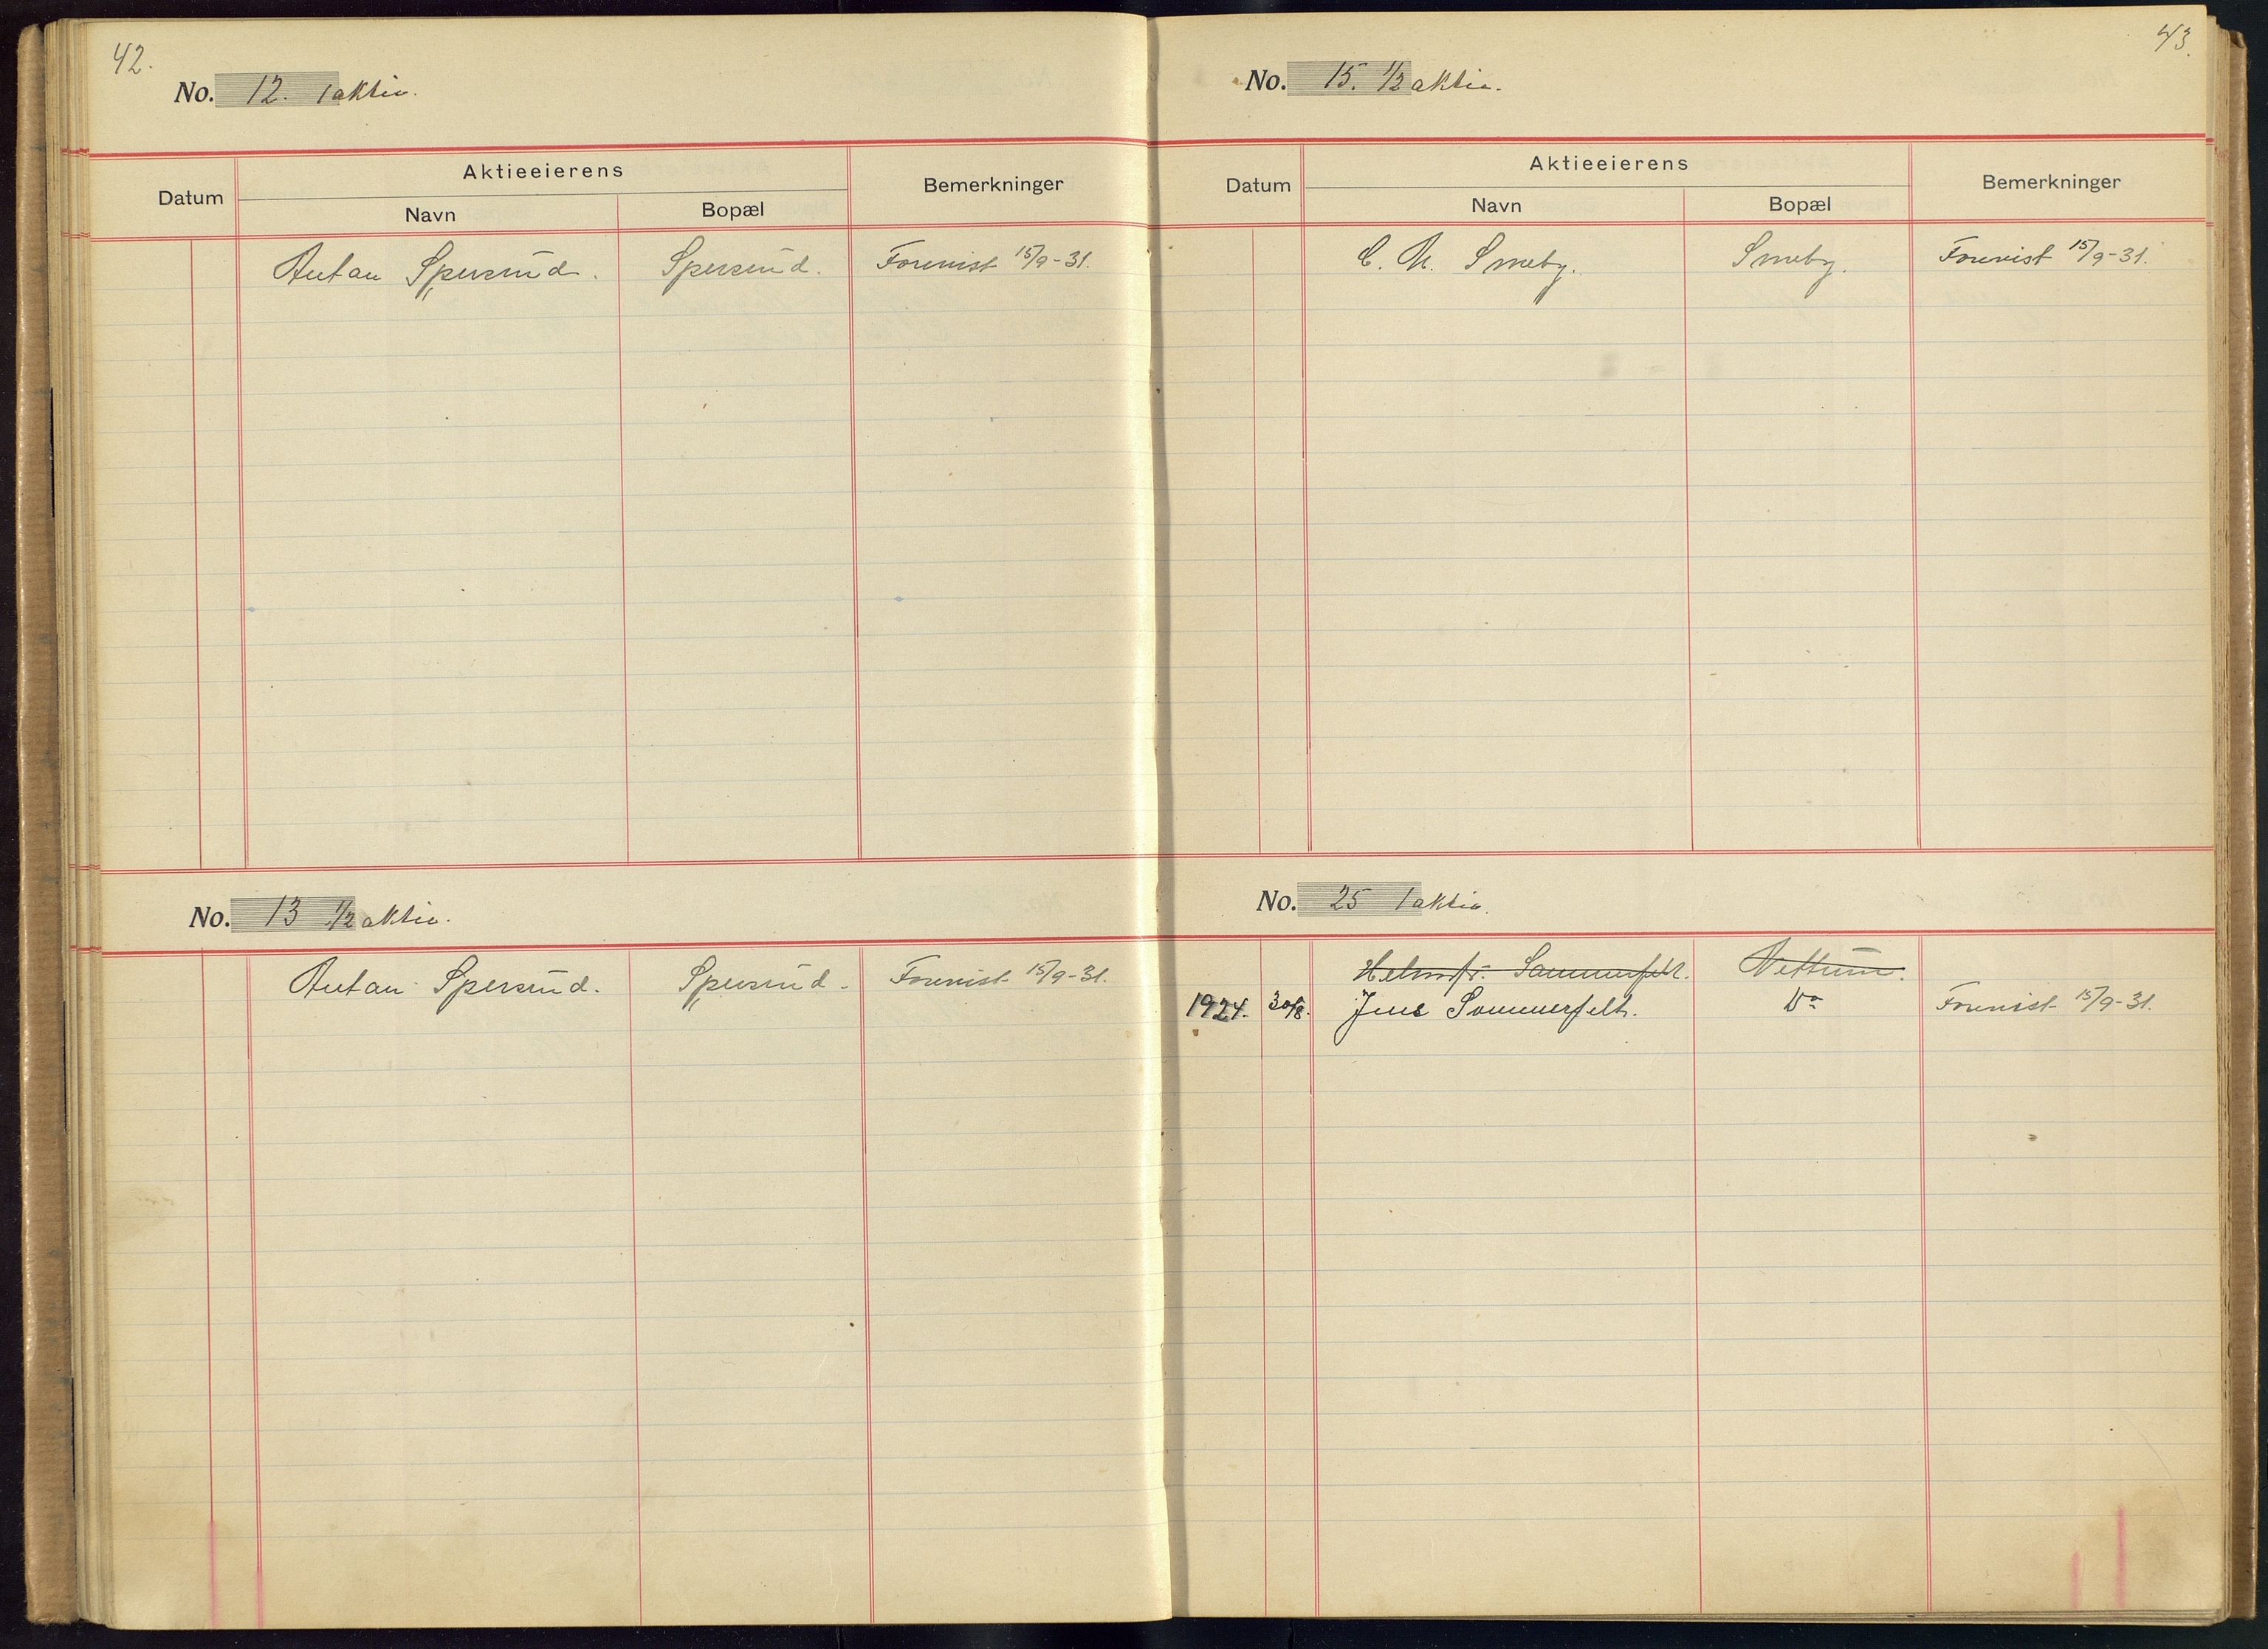 42.
No. 12. 1 aktie.
Datum
Aktieeierens
Navn
Bopæl
Bemerkninger
Anton Spersrud. Spersrud. Forevist 15/9-31.
No. 13 1/2 aktie.
Anton Spersrud. Spersrud. Forevist 15/9-31.
43.
No. 15. 1/2 aktie.
Datum
Aktieeierens
Navn
Bopæl
Bemerkninger
C. M. Smeby. Smeby. Forevist 15/9-31.
No. 25 1 aktie.
Sommerfelt.
1924. 30/8. Jens Sommerfelt. Do Forevist 15/9-31.